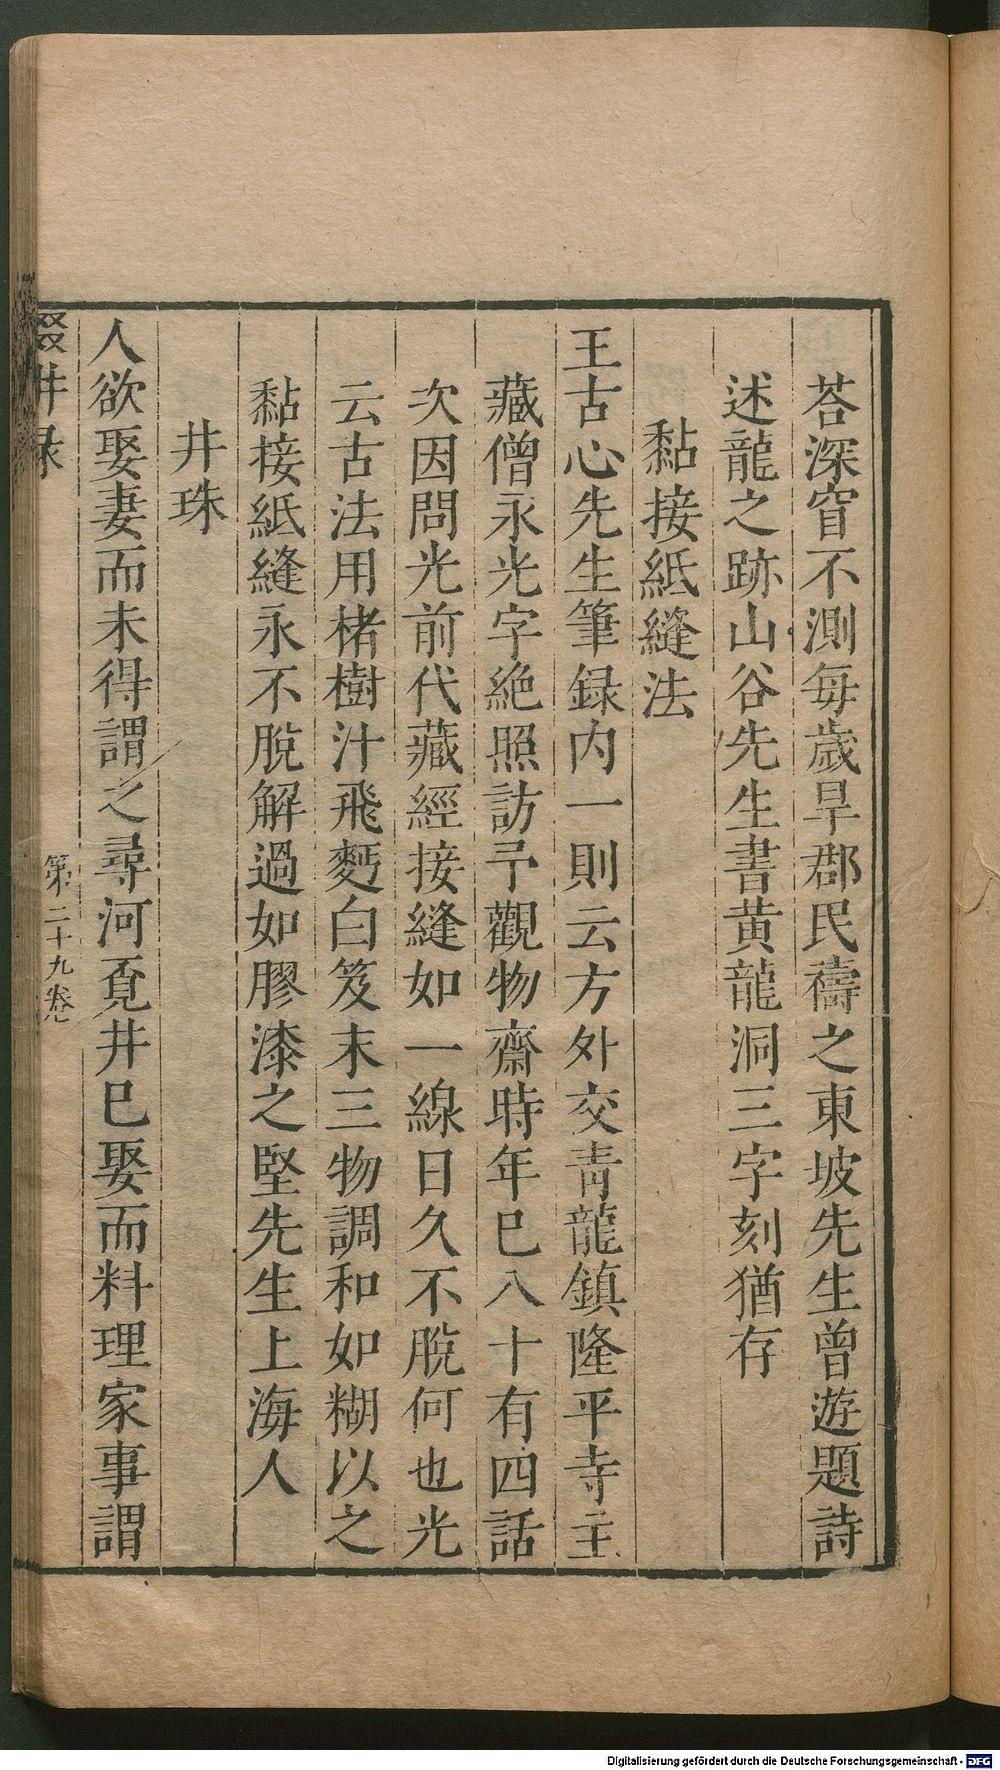 荅深窅不測每歲旱郡民禱之東坡先生曾遊題詩
述龍之跡山谷先生書黄龍洞三字刻猶存
黏接紙縫法
王古心先生筆録内一則云方外交青龍鎮隆平寺主
藏僧永光字絶照訪予觀物齋時年巳八十有四話
次因問光前代藏經接縫如一線日久不脫何也光
云古法用楮樹汁飛麪白笈末三物調和如糊以之
黏接紙縫永不脫解過如膠漆之堅先生上海人
井珠
人欲娶妻而未得謂之尋河覓井巳娶而料理家事謂
輟井录
第二十九卷
Digitalisierung gefördert durch die Deutsche Forschungsgemeinschaft - DFG